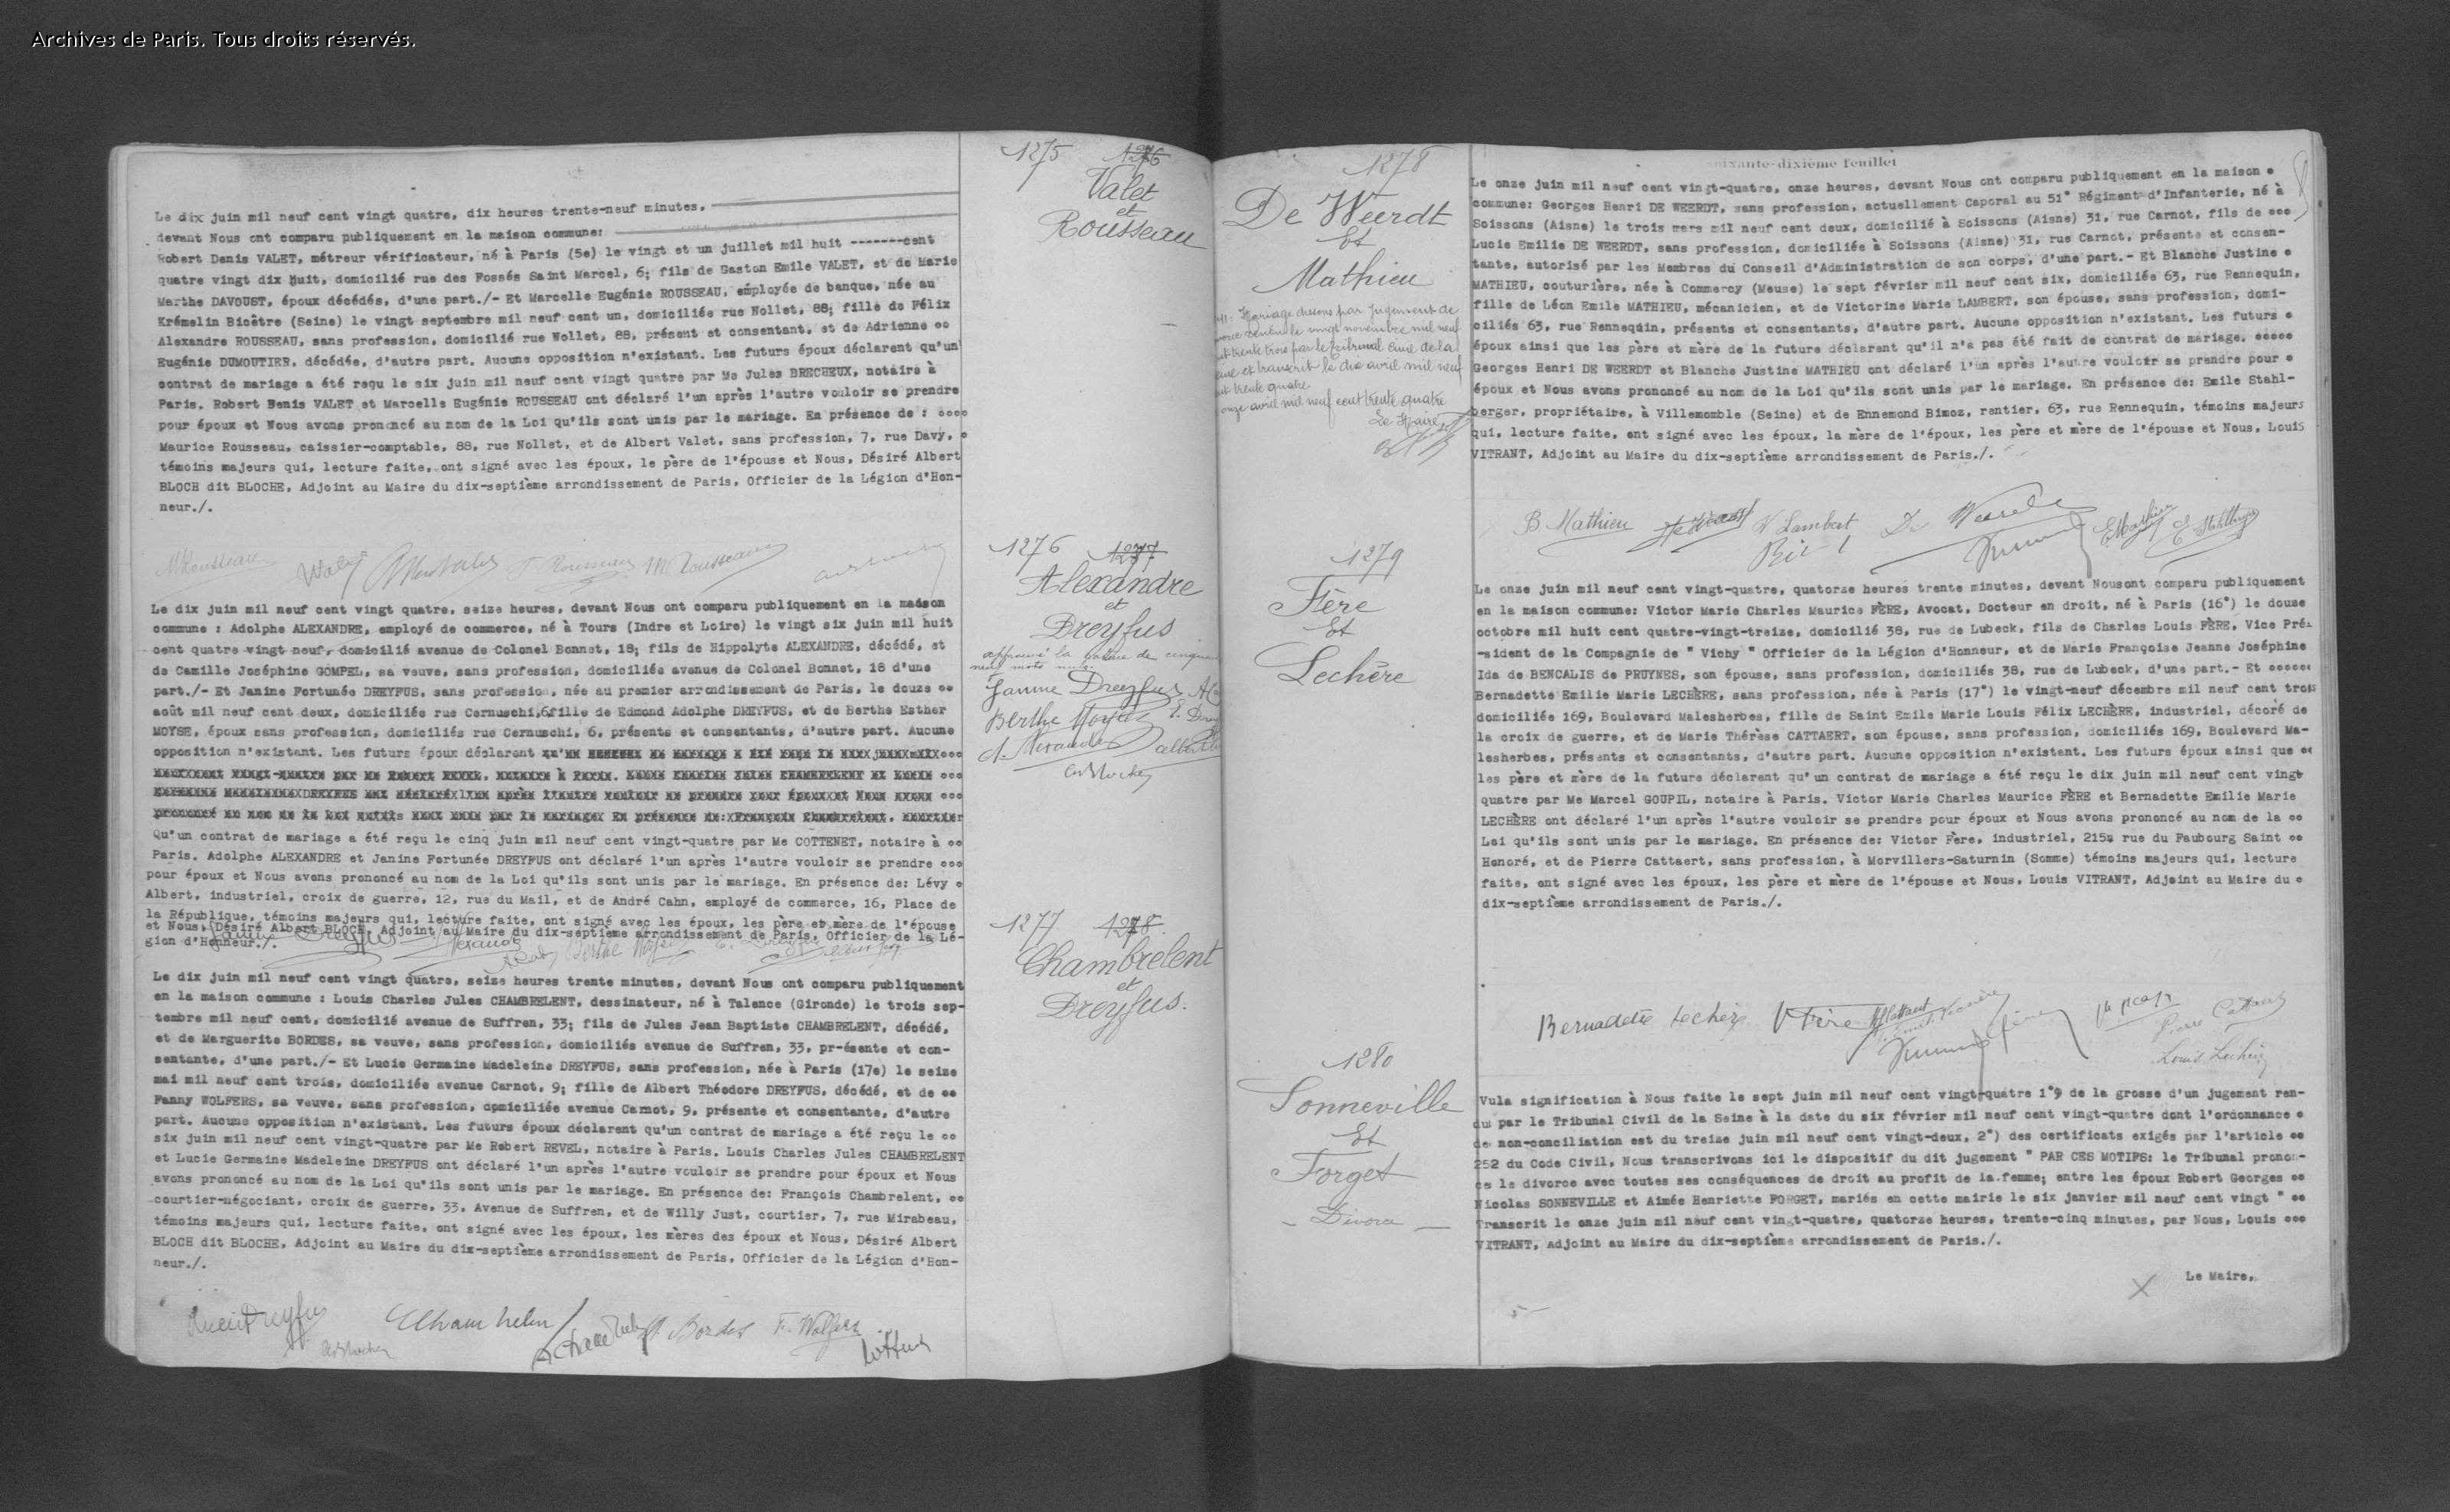 Archives de Paris. Tous droits réservés.
1275 1276
Valet
et
Rousseau
Le dix juin mil neuf cent vingt quatre, dix heures trente-neuf minutes,
devant Nous ont comparu publiquement en la maison commune:
Robert Denis VALET, métreur vérificateur, né à Paris (5e) le vingt et un juillet mil huit -------cent
quatre vingt dix huit, domicilié rue des Fossés Saint Marcel, 6; fils de Gaston Emile VALET, et de Marie
Marthe DAVOUST, époux décédés, d'une part./- Et Marcelle Eugénie ROUSSEAU, employée de banque, née au
Krémelin Bicêtre (Seine) le vingt septembre mil neuf cent un, domiciliée rue Nollet, 88; fille de Félix
Alexandre ROUSSEAU, sans profession, domicilié rue Nollet, 88, présent et consentant, et de Adrienne
Eugénie DUMOUTIER, décédée, d'autre part. Aucune opposition n'existant. Les futurs époux déclarent qu'un
contrat de mariage a été reçu le six juin mil neuf cent vingt quatre par Me Jules BRECHEUX, notaire à
Paris. Robert Denis VALET et Marcelle Eugénie ROUSSEAU ont déclaré l'un après l'autre vouloir se prendre
pour époux et Nous avons prononcé au nom de la Loi qu'ils sont unis par le mariage. En présence de :
Maurice Rousseau, caissier-comptable, 88, rue Nollet, et de Albert Valet, sans profession, 7, rue Davy,
témoins majeurs qui, lecture faite, ont signé avec les époux, le père de l'épouse et Nous, Désiré Albert
BLOCH dit BLOCHE, Adjoint au Maire du dix-septième arrondissement de Paris, Officier de la Légion d'Hon-
neur./.
M Rousseau Valet F. Rousseau M Rousseau
1276 1277
Alexandre
et
Dreyfus
approuvé la rature de cinquante
neuf mots nuls.
Janine Dreyfus
Berthe Moyse
A. Alexandre
Le dix juin mil neuf cent vingt quatre, seize heures, devant Nous ont comparu publiquement en la maison
commune : Adolphe ALEXANDRE, employé de commerce, né à Tours (Indre et Loire) le vingt six juin mil huit
cent quatre vingt neuf, domicilié avenue de Colonel Bonnet, 18; fils de Hippolyte ALEXANDRE, décédé, et
de Camille Joséphine GOMPEL, sa veuve, sans profession, domiciliée avenue de Colonel Bonnet, 18 d'une
part./- Et Janine Fortunée DREYFUS, sans profession, née au premier arrondissement de Paris, le douze
août mil neuf cent deux, domiciliée rue Cernuschi,6,fille de Edmond Adolphe DREYFUS, et de Berthe Esther
MOYSE, époux sans profession, domiciliés rue Cernuschi, 6, présents et consentants, d'autre part. Aucune
opposition n'existant. Les futurs époux déclarent
Qu'un contrat de mariage a été reçu le cinq juin mil neuf cent vingt-quatre par Me COTTENET, notaire à
Paris. Adolphe ALEXANDRE et Janine Fortunée DREYFUS ont déclaré l'un après l'autre vouloir se prendre
pour époux et Nous avons prononcé au nom de la Loi qu'ils sont unis par le mariage. En présence de: Lévy
Albert, industriel, croix de guerre, 12, rue du Mail, et de André Cahn, employé de commerce, 16, Place de
la République, témoins majeurs qui, lecture faite, ont signé avec les époux, les père et mère de l'épouse
et Nous, Désiré Albert BLOCH, Adjoint au Maire du dix-septième arrondissement de Paris, Officier de la Lé-
gion d'Honneur./.
Janine Dreyfus Alexandre Berthe Moyse
1277 1278
Chambrelent
et
Dreyfus.
Le dix juin mil neuf cent vingt quatre, seize heures trente minutes, devant Nous ont comparu publiquement
en la maison commune : Louis Charles Jules CHAMBRELENT, dessinateur, né à Talence (Gironde) le trois sep-
tembre mil neuf cent, domicilié avenue de Suffren, 33; fils de Jules Jean Baptiste CHAMBRELENT, décédé,
et de Marguerite BORDES, sa veuve, sans profession, domiciliés avenue de Suffren, 33, pr-ésente et con-
sentante, d'une part./- Et Lucie Germaine Madeleine DREYFUS, sans profession, née à Paris (17e) le seize
mai mil neuf cent trois, domiciliée avenue Carnot, 9; fille de Albert Théodore DREYFUS, décédé, et de
Fanny WOLFERS, sa veuve, sans profession, domiciliée avenue Carnot, 9, présente et consentante, d'autre
part. Aucune opposition n'existant. Les futurs époux déclarent qu'un contrat de mariage a été reçu le
six juin mil neuf cent vingt-quatre par Me Robert REVEL, notaire à Paris. Louis Charles Jules CHAMBRELENT
et Lucie Germaine Madeleine DREYFUS ont déclaré l'un après l'autre vouloir se prendre pour époux et Nous
avons prononcé au nom de la Loi qu'ils sont unis par le mariage. En présence de: François Chambrelent,
courtier-négociant, croix de guerre, 33, Avenue de Suffren, et de Willy Just, courtier, 7, rue Mirabeau,
témoins majeurs qui, lecture faite, ont signé avec les époux, les mères des époux et Nous, Désiré Albert
BLOCH dit BLOCHE, Adjoint au Maire du dix-septième arrondissement de Paris, Officier de la Légion d'Hon-
neur./.
Lucie Dreyfus Bordes F. Wolfers
1278
De Weerdt
Et
Mathieu
Mariage dissous par jugement de
divorce rendu le vingt novembre mil neuf
cent trente trois par le tribunal civil de la
Seine et transcrit le dix avril mil neuf
cent trente quatre
onze avril mil neuf cent trente quatre
Le Maire,
soixante-dixième feuillet
Le onze juin mil neuf cent vingt-quatre, onze heures, devant Nous ont comparu publiquement en la maison
commune: Georges Henri DE WEERDT, sans profession, actuellement Caporal au 51° Régiment d'Infanterie, né à
Soissons (Aisne) le trois mars mil neuf cent deux, domicilié à Soissons (Aisne) 31, rue Carnot, fils de
Lucie Emilie DE WEERDT, sans profession, domiciliée à Soissons (Aisne) 31, rue Carnot, présente et consen-
tante, autorisé par les Membres du Conseil d'Administration de son corps, d'une part.- Et Blanche Justine
MATHIEU, couturière, née à Commercy (Meuse) le sept février mil neuf cent six, domiciliée 63, rue Rennequin,
fille de Léon Emile MATHIEU, mécanicien, et de Victorine Marie LAMBERT, son épouse, sans profession, domi-
ciliés 63, rue Rennequin, présents et consentants, d'autre part. Aucune opposition n'existant. Les futurs
époux ainsi que les père et mère de la future déclarent qu'il n'a pas été fait de contrat de mariage.
Georges Henri DE WEERDT et Blanche Justine MATHIEU ont déclaré l'un après l'autre vouloir se prendre pour
époux et Nous avons prononcé au nom de la Loi qu'ils sont unis par le mariage. En présence de: Emile Stahl-
berger, propriétaire, à Villemomble (Seine) et de Ennemond Bimoz, rentier, 63, rue Rennequin, témoins majeurs
qui, lecture faite, ont signé avec les époux, la mère de l'époux, les père et mère de l'épouse et Nous, Louis
VITRANT, Adjoint au Maire du dix-septième arrondissement de Paris./.
B Mathieu V Lambert De Weerdt E Mathieu E Stahlberger
1279
Fère
Et
Lechère
Le onze juin mil neuf cent vingt-quatre, quatorze heures trente minutes, devant Nousont comparu publiquement
en la maison commune: Victor Marie Charles Maurice FÈRE, Avocat, Docteur en droit, né à Paris (16°) le douse
octobre mil huit cent quatre-vingt-treize, domicilié 38, rue de Lubeck, fils de Charles Louis FÈRE, Vice Pré-
-sident de la Compagnie de " Vichy " Officier de la Légion d'Honneur, et de Marie Françoise Jeanne Joséphine
Ida de BENCALIS de PRUYNES, son épouse, sans profession, domiciliés 38, rue de Lubeck, d'une part.- Et
Bernadette Emilie Marie LECHÈRE, sans profession, née à Paris (17°) le vingt-neuf décembre mil neuf cent trois
domiciliée 169, Boulevard Malesherbes, fille de Saint Emile Marie Louis Félix LECHÈRE, industriel, décoré de
la croix de guerre, et de Marie Thérèse CATTAERT, son épouse, sans profession, domiciliés 169, Boulevard Ma-
lesherbes, présents et consentants, d'autre part. Aucune opposition n'existant. Les futurs époux ainsi que
les père et mère de la future déclarent qu'un contrat de mariage a été reçu le dix juin mil neuf cent vingt
quatre par Me Marcel GOUPIL, notaire à Paris. Victor Marie Charles Maurice FÈRE et Bernadette Emilie Marie
LECHÈRE ont déclaré l'un après l'autre vouloir se prendre pour époux et Nous avons prononcé au nom de la
Loi qu'ils sont unis par le mariage. En présence de: Victor Fère, industriel, 215, rue du Faubourg Saint
Honoré, et de Pierre Cattaert, sans profession, à Morvillers-Saturnin (Somme) témoins majeurs qui, lecture
faite, ont signé avec les époux, les père et mère de l'épouse et Nous, Louis VITRANT, Adjoint au Maire du
dix-septième arrondissement de Paris./.
Bernadette Lechère V Fère Pierre Cattaert
Louis Lechère
1280
Sonneville
Et
Forget
- Divorce -
Vula signification à Nous faite le sept juin mil neuf cent vingt-quatre 1°9 de la grosse d'un jugement ren-
du par le Tribunal Civil de la Seine à la date du six février mil neuf cent vingt-quatre dont l'ordonnance
de non-conciliation est du treize juin mil neuf cent vingt-deux, 2°) des certificats exigés par l'article
252 du Code Civil, Nous transcrivons ici le dispositif du dit jugement " PAR CES MOTIFS: le Tribunal pronon-
ce le divorce avec toutes ses conséquences de droit au profit de la femme; entre les époux Robert Georges
Nicolas SONNEVILLE et Aimée Henriette FORGET, mariés en cette mairie le six janvier mil neuf cent vingt "
Transcrit le onze juin mil neuf cent vingt-quatre, quatorze heures, trente-cinq minutes, par Nous, Louis
VITRANT, Adjoint au Maire du dix-septième arrondissement de Paris./.
Le Maire,